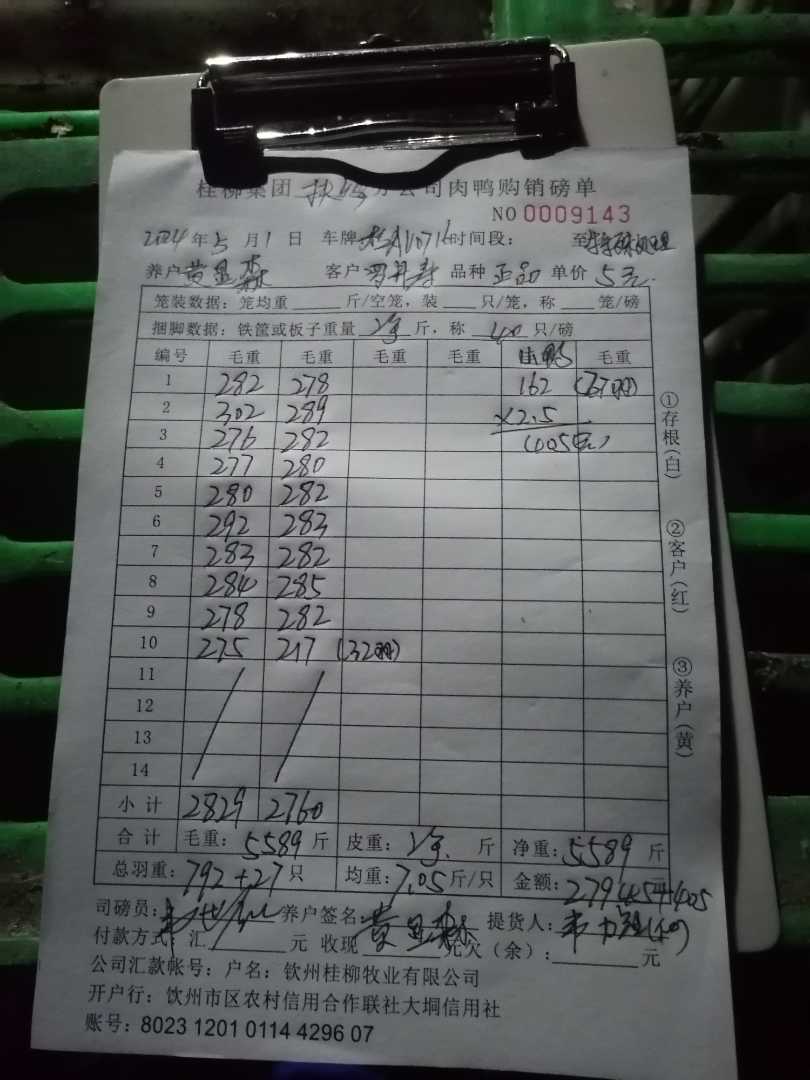 桂柳集团 扶绥分公司肉鸭购销磅单
NO 0009143
2024年5月1日 车牌 桂A10716 时间段： 至
养户 黄显森 客户 品种 正品 单价 5元
笼装数据：笼均重 斤/空笼，装 只/笼，称 笼/磅
捆脚数据：铁筐或板子重量 净 斤，称 40 只/磅
编号 毛重 毛重 毛重 毛重 毛重
1 282 278 162 (27羽)
2 302 289 ×2.5
3 276 282 (405元)
4 277 280
5 280 282
6 292 283
7 283 282
8 284 285
9 278 282
10 275 217 (32羽)
11
12
13
14
小计 2829 2760
合计 毛重：5589斤 皮重：净 斤 净重：5589斤
总羽重：792+27只 均重：7.05斤/只 金额：27945+405
司磅员： 养户签名：黄显森 提货人：
付款方式：汇 元 收现 元欠（余）： 元
公司汇款帐号：户名：钦州桂柳牧业有限公司
开户行：钦州市区农村信用合作联社大垌信用社
账号：8023 1201 0114 4296 07
①存根（白）
②客户（红）
③养户（黄）